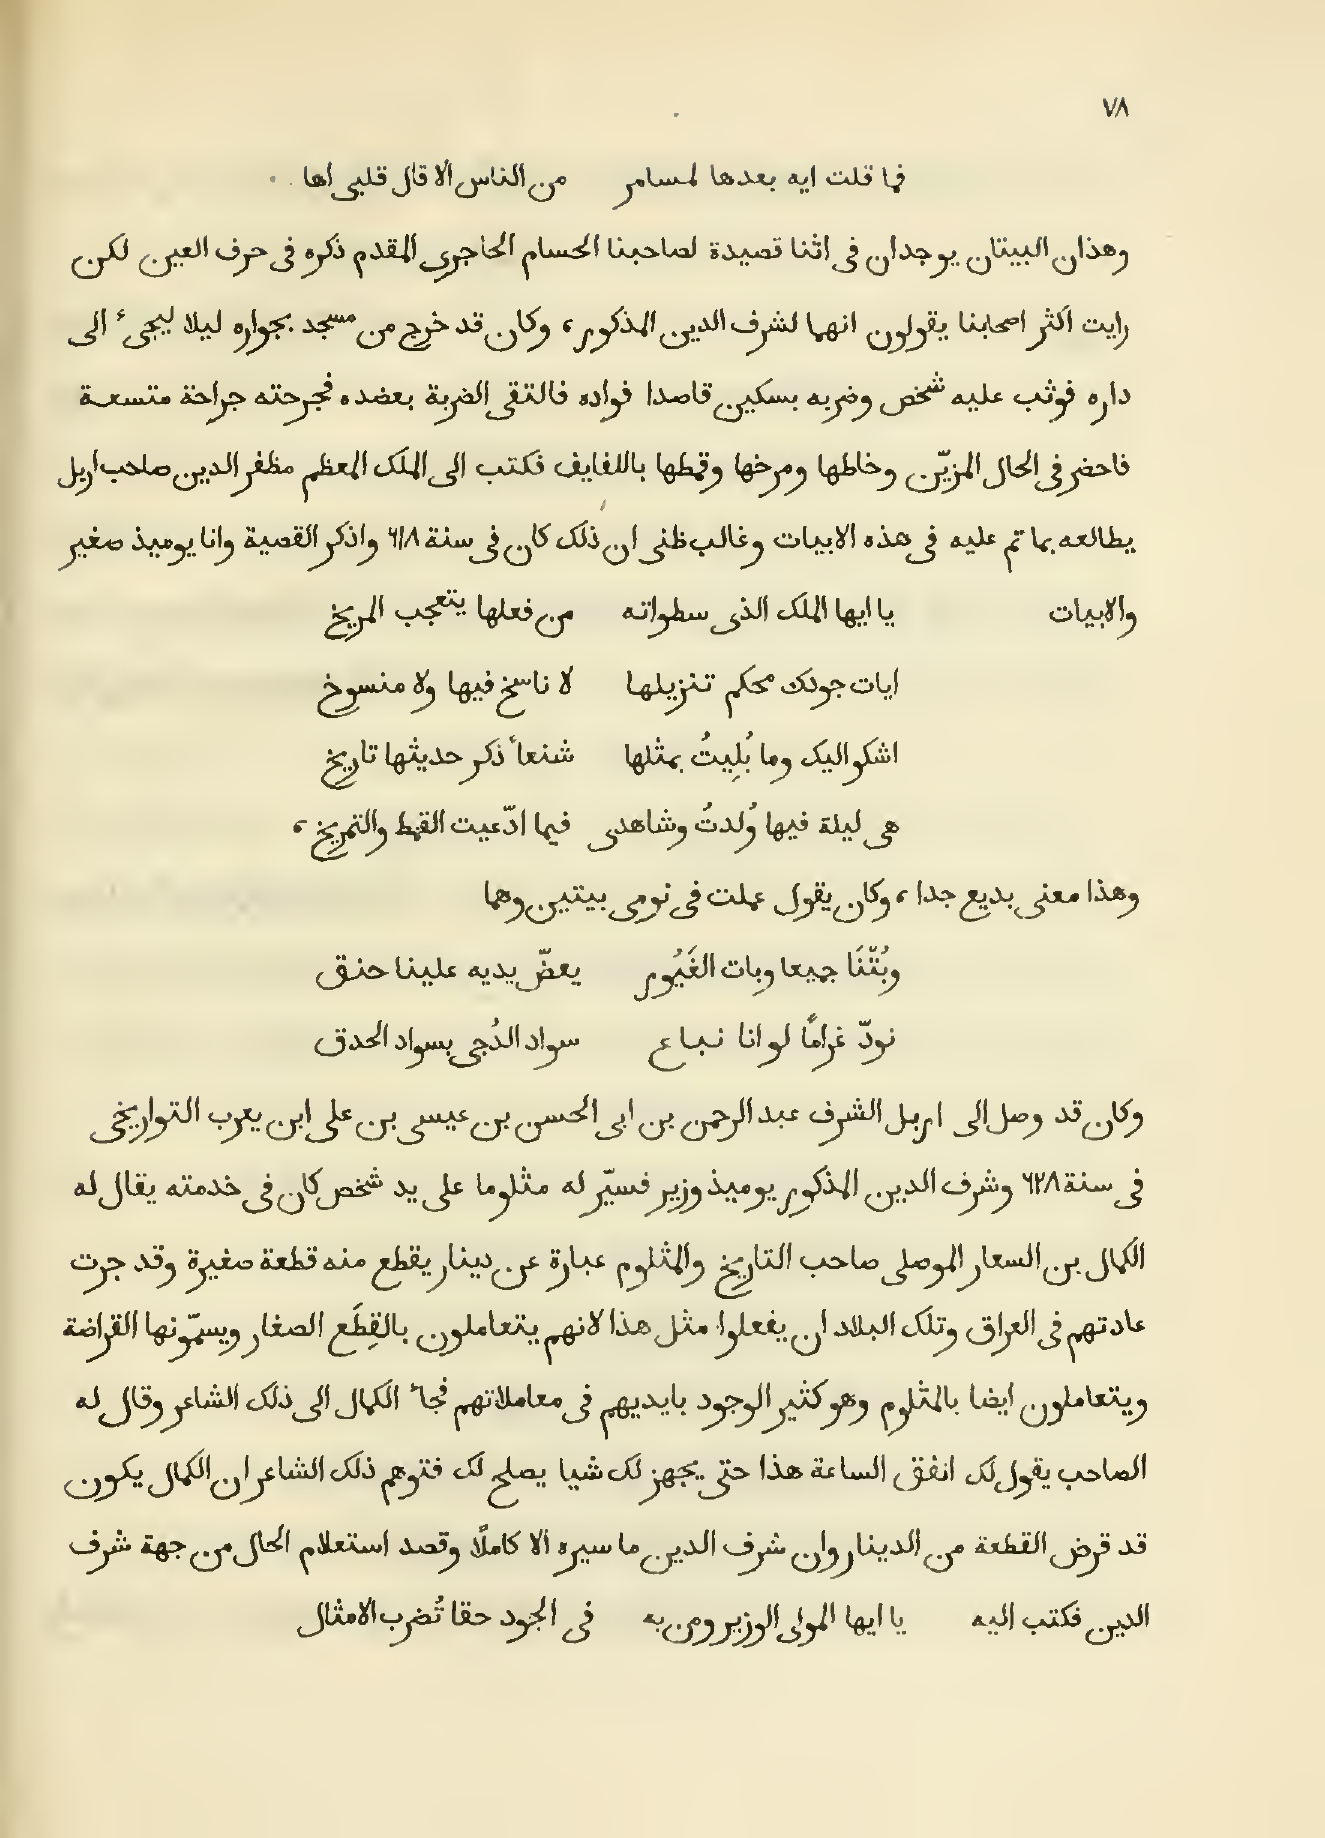 ٧٨
فما قلت ايه بعدها لمسامر من الناس الا قال قلبى اها
وهذان البيتان يوجدان فى اثنا قصيدة لصاحبنا الحسام الحاجرى المقدم ذكره فى حرف العين لكن
رايت اكثر اصحابنا يقولون انهما لشرف الدين المذكور، وكان قد خرج من مسجد بجواره ليلا ليجىء الى
داره فوثب عليه شخص وضربه بسكين قاصدا فواده فالتقى الضربة بعضده فجرحته جراحة متسعة
فاحضر فى الحال المزيّن وخاطها ومرخها وقمطها باللفايف فكتب الى الملك المعظم مظفر الدين صاحب اربل
يطالعه بما تم عليه فى هذه الابيات وغالب ظنى ان ذلك كان فى سنة ٦١٨ واذكر القصية وانا يوميذ صغير
والابيات يا ايها الملك الذى سطواته من فعلها يتعجب المريخ
ايات جودك محكم تنزيلها لا ناسخ فيها ولا منسوخ
اشكو اليك وما بُلِيتُ بمثلها شنعاء ذكر حديثها تاريخ
هى ليلة فيها وُلدتُ وشاهدى فيما ادّعيت القمط والتمريخ،
وهذا معنى بديع جدا، وكان يقول عملت فى نومى بيتين وهما
وبُتّنَا جميعا وبات الغَيُور يعضّ يديه علينا حنق
نودّ غرامًا لو انا نباع سواد الدُجى بسواد الحدق
وكان قد وصل الى اربل الشرف عبد الرحمن بن ابى الحسن بن عيسى بن على ابن يعرب التواريخى
فى سنة ٦٢٨ وشرف الدين المذكور يوميذ وزير فسيّر له مثلوما على يد شخص كان فى خدمته يقال له
الكمال بن السعار الموصلى صاحب التاريخ والمثلوم عبارة عن دينار يقطع منه قطعة صغيرة وقد جرت
عادتهم فى العراق وتلك البلاد ان يفعلوا مثل هذا لانهم يتعاملون بالقِطَع الصغار ويسمّونها القراضة
ويتعاملون ايضا بالمثلوم وهو كثير الوجود بايديهم فى معاملاتهم فجاء الكمال الى ذلك الشاعر وقال له
الصاحب يقول لك انفق الساعة هذا حتى يجهز لك شيا يصلح لك فتوهم ذلك الشاعر ان الكمال يكون
قد قرض القطعة من الدينار وان شرف الدين ما سيره الا كاملًا وقصد استعلام الحال من جهة شرف
الدين فكتب اليه يا ايها المولى الوزير ومن به فى الجود حقا تُضرب الامثال